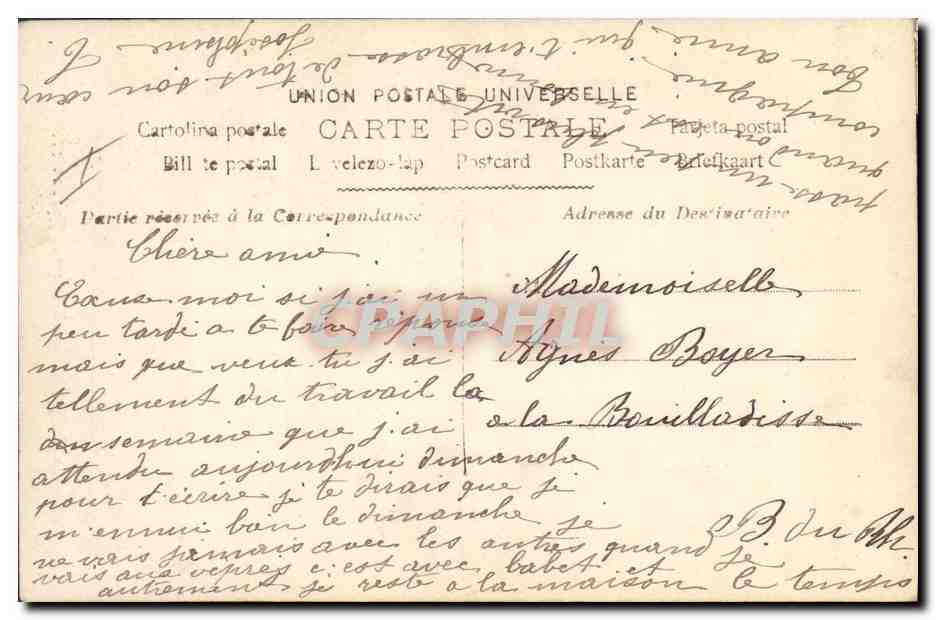 UNION POSTALE UNIVERSELLE
Cartolina postale CARTE POSTALE Tarjeta postal
Postcard Postkarte Briefkaart
Partie réservée à la Correspondance
Adresse du Destinataire
Chère amie
moi si j'ai un
peu tardé a te faire réponse
mais que veux tu j'ai
tellement du travail la
semaine que j'ai
attendu aujourdhui dimanche
pour t'écrire je te dirais que je
m'ennui bien le dimanche je
ne vais jamais avec les autres quand je
vais aux vepres c'est avec babet et
autrement je reste a la maison le temps
Mademoiselle
Agnes Boyer
a la Bouilladisse
B. du Rh.
passe un
quand on est
compagnie
Ton amie qui t'embrasse de tout son cœur
Joséphine
CPAPHIL